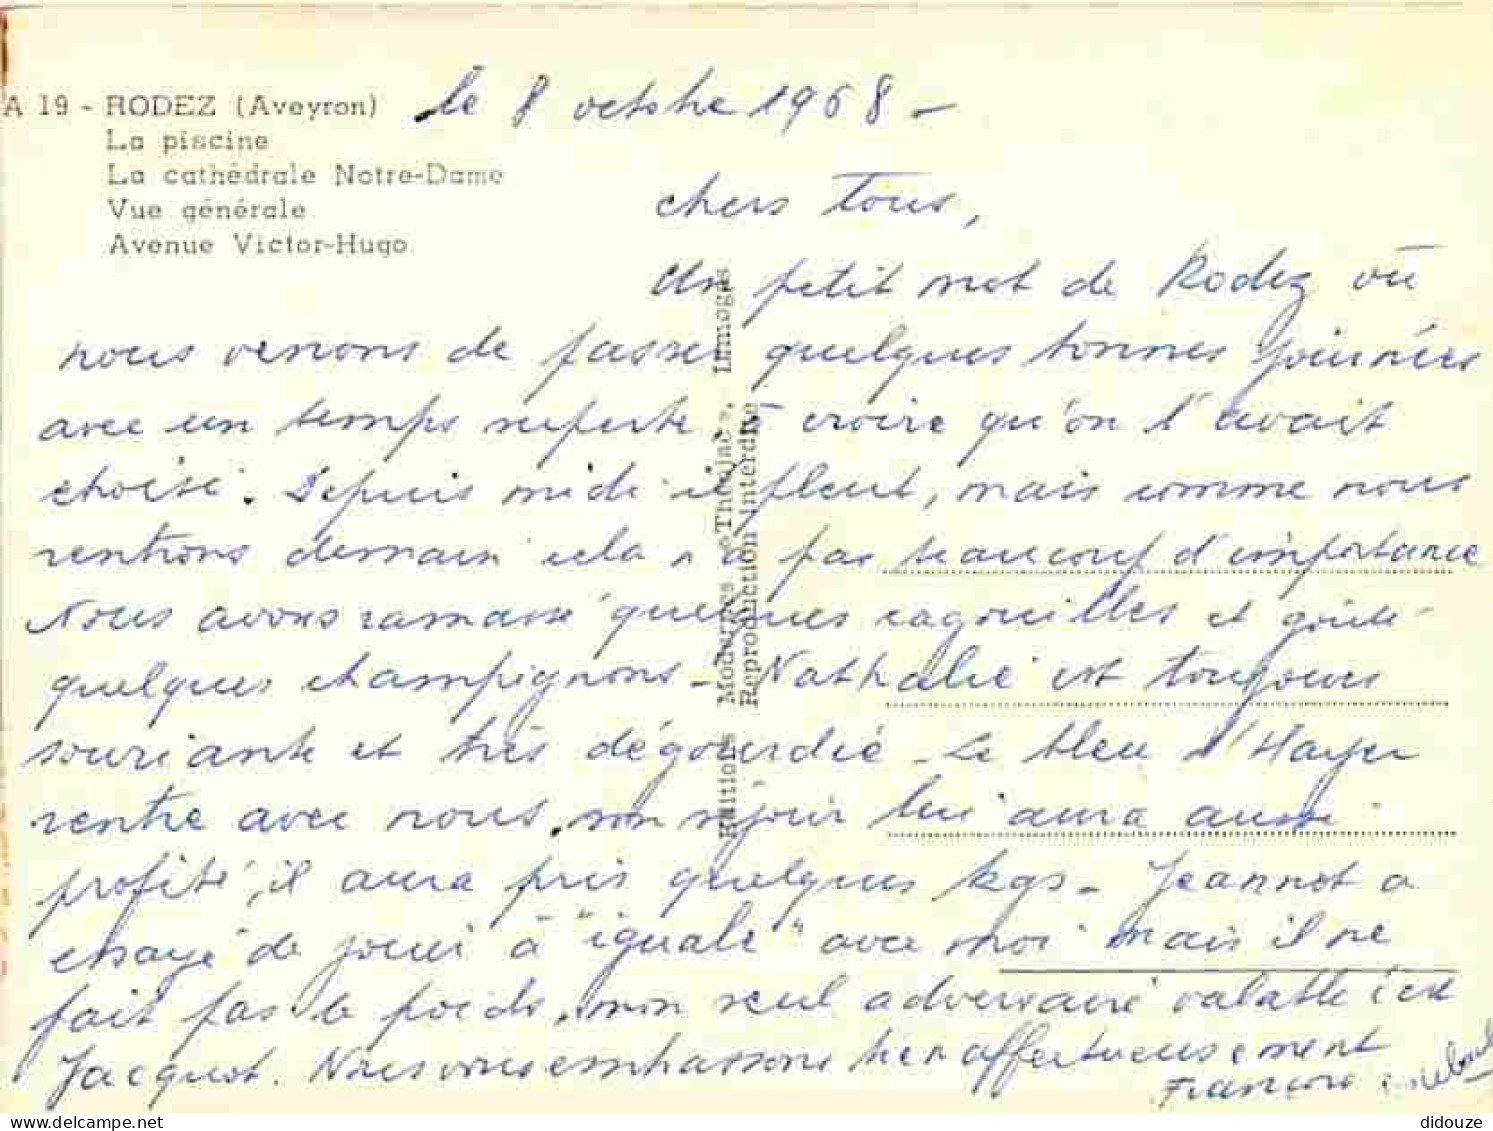 A 19 - RODEZ (Aveyron)
La piscine
La cathédrale Notre-Dame
Vue générale
Avenue Victor-Hugo
le 8 octobre 1968 -
chers tous,
Un petit mot de Rodez où
nous venons de passer quelques bonnes journées
avec un temps superbe à croire qu'on l'avait
choisi. Depuis midi il pleut, mais comme nous
rentrons demain cela n'a pas beaucoup d'importance
Nous avons ramassé quelques cagouilles et goûté
quelques champignons - Nathalie est toujours
souriante et très dégourdie - Le bleu d'Hayer
rentre avec nous, son séjour lui aura aussi
profité, il aura pris quelques kgs - Jeannot a
essayé de jouer à "igualé" avec moi mais il ne
fait pas le poids, mon seul adversaire valable c'est
Jacquot. Nous vous embrassons bien affectueusement
François
Editions Modernes « Théojac », Limoges
Reproduction interdite
didouze